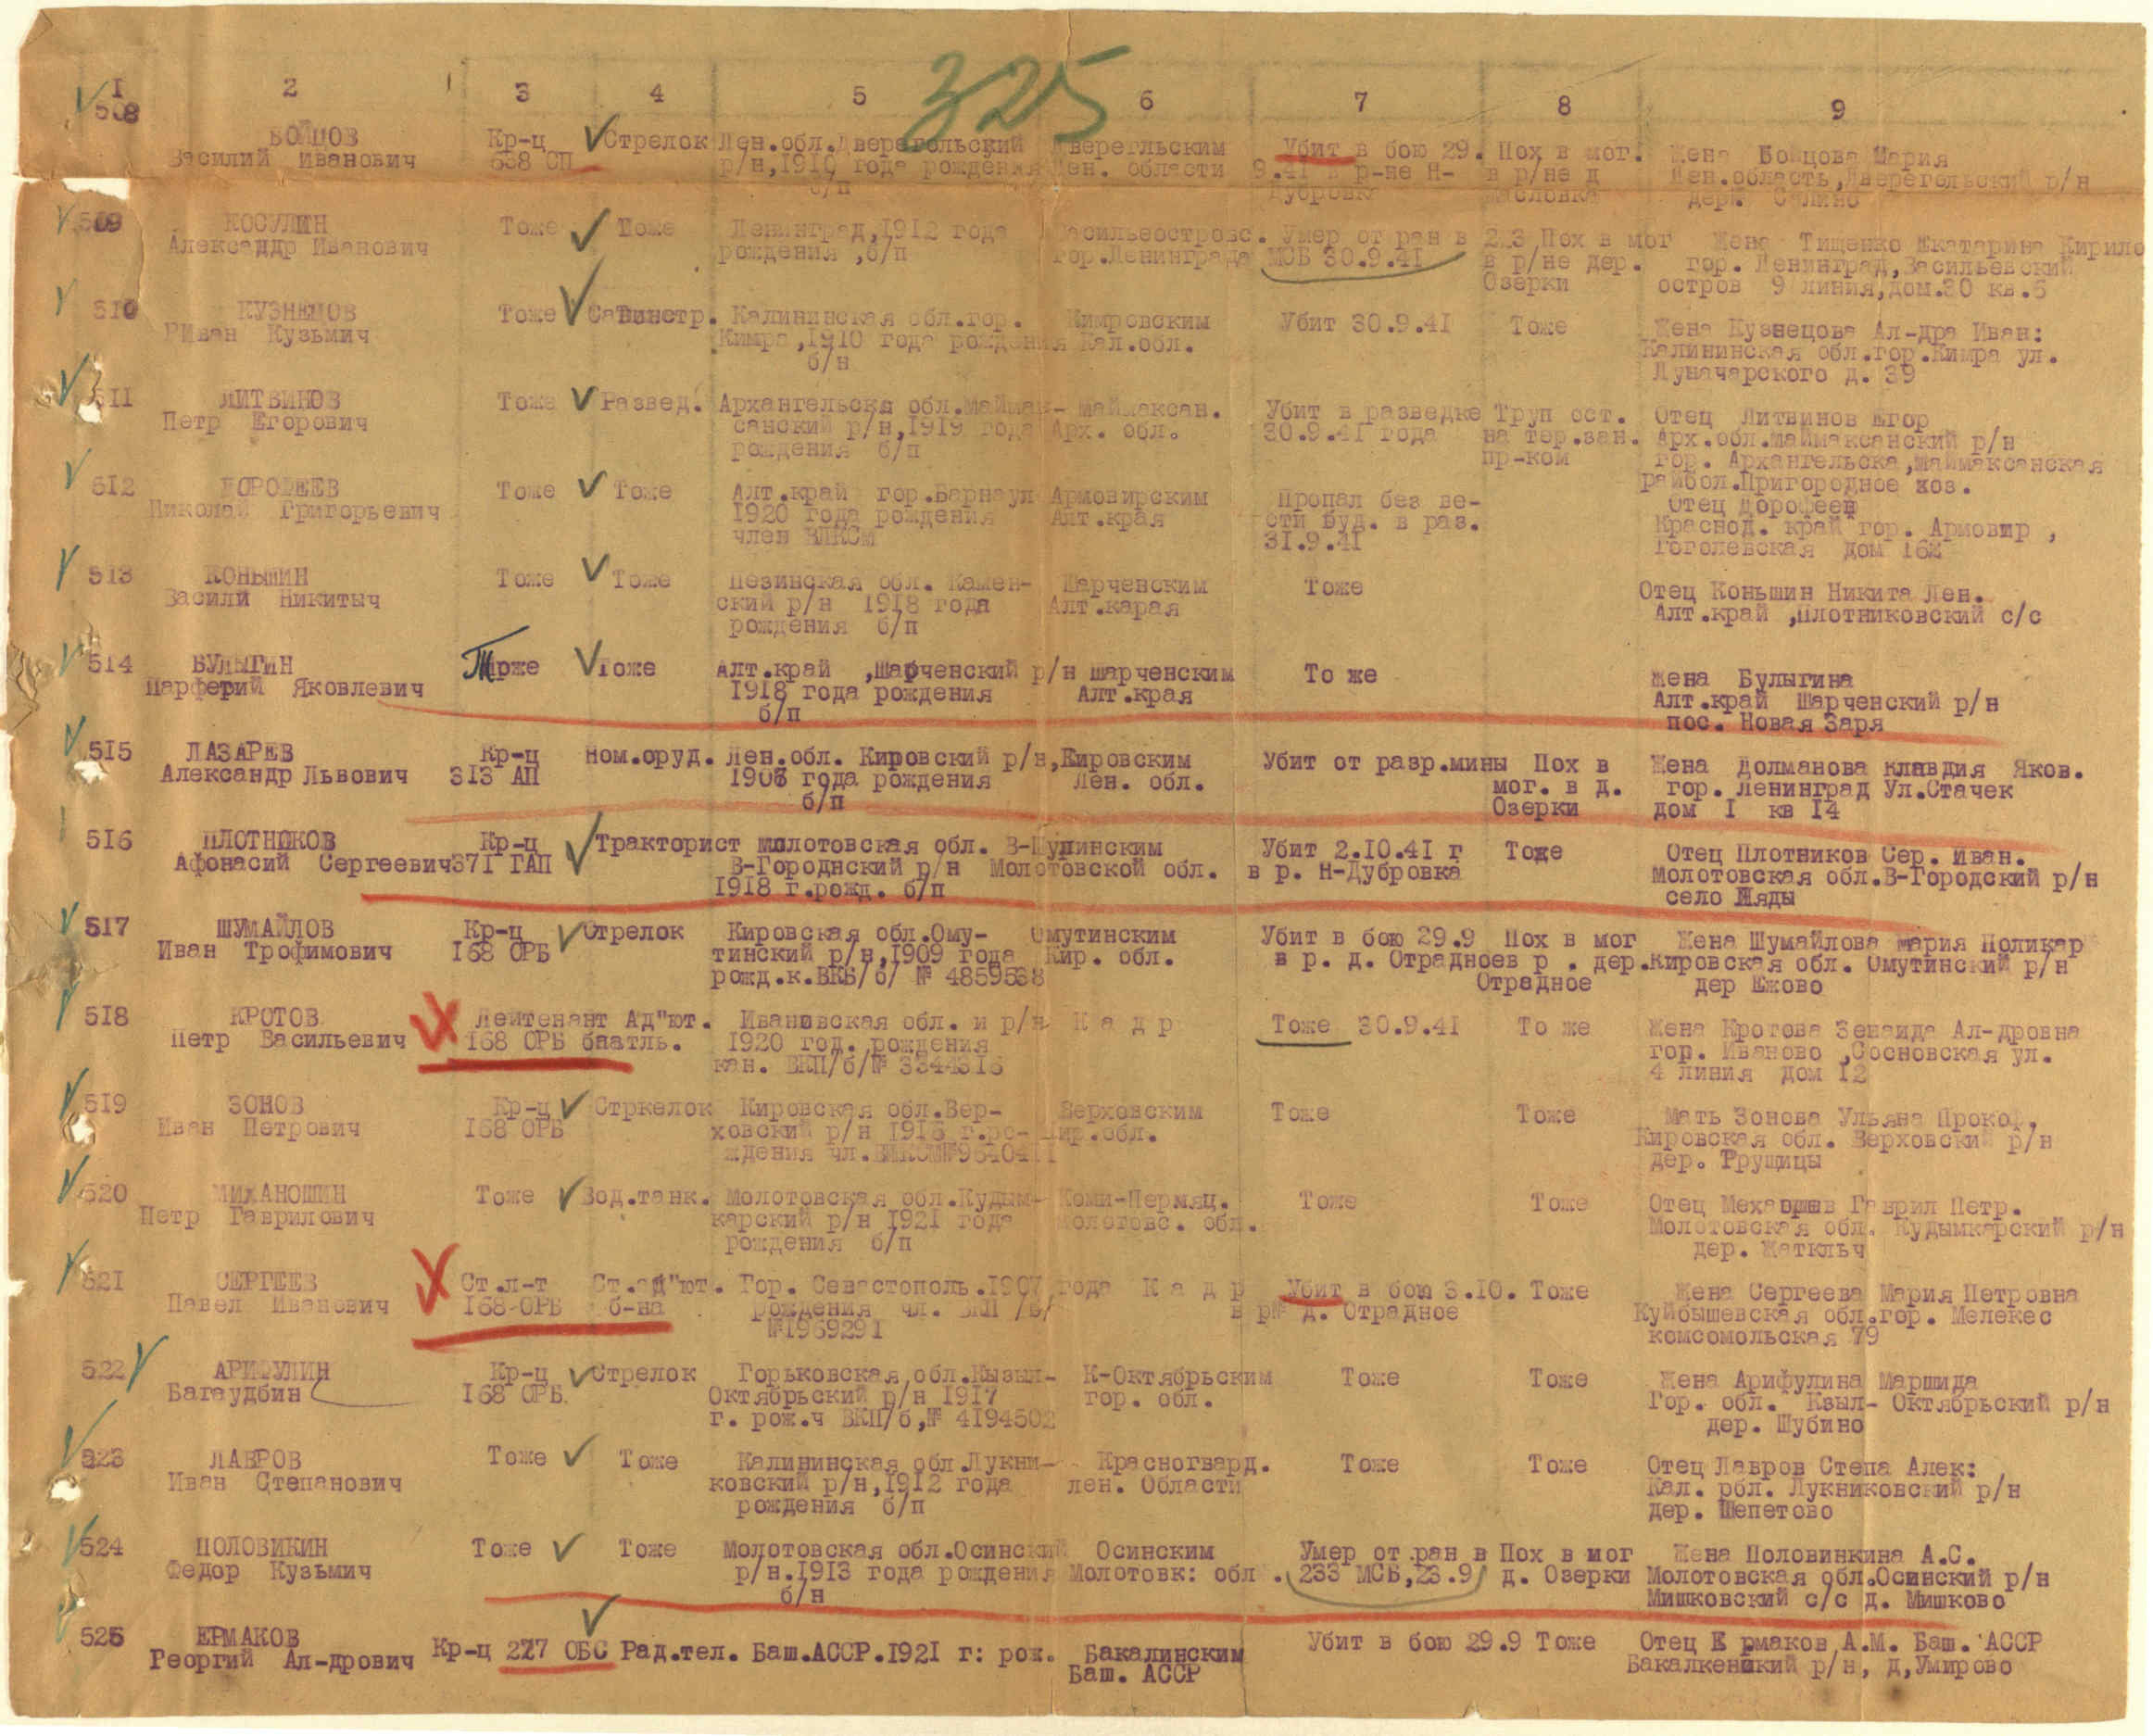 325
I 2 3 4 5 6 7 8 9
508 БОЙЦОВ Кр-ц Стрелок Лен.обл.Дверегольский Дверегльским Убит в бою 29. Пох в мог. Жена Бойцова Мария
Василий Иванович 638 СП р/н,1910 года рождения Лен. области 9.41 в р-не Н- в р/не д Лен.область,Дверегольский р/н
б/п Дубровка Масловка дер. Сялино
509 КОСУЛИН Тоже Тоже Ленинград,1912 года Васильеостровс. Умер от ран в 2 3 Пох в мог Жена Тищенко Екатерина Кирило
Александр Иванович рождения ,б/п гор.Ленинграда МСБ 30.9.41 в р/не дер. гор. Ленинград,Васильевский
Озерки остров 9 линия,дом.30 кв.5
510 КУЗНЕЦОВ Тоже Сатинстр. Калининская обл.гор. Кимровским Убит 30.9.41 Тоже Жена Кузнецова Ал-дра Иван:
Иван Кузьмич Кимра,1910 года рождения Кал.обл. Калининская обл.гор.Кимра ул.
б/н Луначарского д. 39
511 ЛИТВИНОВ Тоже Развед. Архангельска обл.Маймак- Маймаксан. Убит в разведке Труп ост. Отец Литвинов Егор
Петр Егорович санский р/н,1919 года Арх. обл. 30.9.41 года на тер.зан. Арх.обл.Маймаксанский р/н
рождения б/п пр-ком гор. Архангельска,Маймаксанская
райбол.Пригородное хоз.
512 ДОРОФЕЕВ Тоже Тоже Алт.край гор.Барнаул Армовирским Пропал без ве- Отец Дорофеев
Николай Григорьевич 1920 года рождения Алт.края сти буд. в раз. Краснод. край гор. Армовир ,
член ВЛКСМ 31.9.41 Гоголевская дом 162
513 КОНЬШИН Тоже Тоже Пезинская обл. Камен- Шарчевским Тоже Отец Коньшин Никита Лен.
Васили Никитыч ский р/н 1918 года Алт.карая Алт.край ,Плотниковский с/с
рождения б/п
514 БУЛЫГИН Тоже Тоже Алт.край ,Шарченский р/н Шарченским То же Жена Булыгина
Парферий Яковлевич 1918 года рождения Алт.края Алт.край Шарченский р/н
б/п пос. Новая Заря
515 ЛАЗАРЕВ Кр-ц Ном.оруд. Лен.обл. Кировский р/н,Кировским Убит от разр.мины Пох в Жена Долманова Клавдия Яков.
Александр Львович 313 АП 1906 года рождения Лен. обл. мог. в д. гор. Ленинград Ул.Стачек
б/п Озерки дом I кв 14
516 ПЛОТНИКОВ Кр-ц Тракторист Молотовская обл. В-Гупинским Убит 2.10.41 г Тоже Отец Плотников Сер. Иван.
Афонасий Сергеевич 371 ГАП В-Городнский р/н Молотовской обл. в р. Н-Дубровка Молотовская обл.В-Городский р/н
1918 г.рожд. б/п село Жяды
517 ШУМАЙЛОВ Кр-ц Стрелок Кировская обл.Ому- Омутинским Убит в бою 29.9 Пох в мог Жена Шумайлова Мария Поликар
Иван Трофимович 168 ОРБ тинский р/н,1909 года Кир. обл. в р. д. Отрадноев р . дер.Кировская обл. Омутинский р/н
рожд.к.ВКБ/б/ № 4859568 Отрадное дер Ежово
518 КРОТОВ Лейтенант Ад"ют. Ивановская обл. и р/н К а д р Тоже 30.9.41 То же Жена Кротова Зенаида Ал-дровна
Петр Васильевич 168 ОРБ баатль. 1920 год. рождения гор. Иваново ,Сосновская ул.
кан. ВКП/б/№ 3344316 4 линия дом 12
519 ЗОНОВ Кр-ц Стркелок Кировская обл.Вер- Верховским Тоже Тоже Мать Зонова Ульяна Прокоф.
Иван Петрович 168 ОРБ ховский р/н 1918 г.ро- Кир.обл. Кировская обл. Верховский р/н
ждения чл.ВЛКСМ№9640411 дер. Трушицы
520 МИХАНОШИН Тоже Вод.танк. Молотовская обл.Кудым- Коми-Пермяц. Тоже Тоже Отец Гаврил Петр.
Петр Гаврилович карский р/н 1921 года Молотовс. обл. Молотовская обл. Кудымкарский р/н
рождения б/п дер. Жаткльч
521 СЕРГЕЕВ Ст.л-т Ст.ад"ют. Гор. Севастополь.1907 года К а д р Убит в бою 3.10. Тоже Жена Сергеева Мария Петровна
Павел Иванович 168-ОРБ б-на рождения чл. ВКП /б/ в р№ д. Отрадное Куйбышевская обл.гор. Мелекес
№1969291 комсомольская 79
522 АРИФУЛИН Кр-ц Стрелок Горьковская обл.Кызыл- К-Октябрьским Тоже Тоже Жена Арифулина Маршида
Багаудбин 168 ОРБ. Октябрьский р/н 1917 гор. обл. Гор. обл. Кзыл- Октябрьский р/н
г. рож.ч ВКП/б,№ 4194502 дер. Шубино
523 ЛАВРОВ Тоже Тоже Калининская обл Лукни- Красногвард. Тоже Тоже Отец Лавров Степа Алек:
Иван Степанович ковский р/н,1912 года лен. Области Кал. рбл. Лукниковский р/н
рождения б/п дер. Шепетово
524 ПОЛОВИКИН Тоже Тоже Молотовская обл.Осинский Осинским Умер от ран в Пох в мог Жена Половинкина А.С.
Федор Кузьмич р/н.1913 года рождения Молотовк: обл . 233 МСБ,23.9 д. Озерки Молотовская обл.Осинский р/н
б/н Мишковский с/с д. Мишково
525 ЕРМАКОВ Кр-ц 227 ОБС Рад.тел. Баш.АССР.1921 г: рож. Бакалинским Убит в бою 29.9 Тоже Отец Е рмаков А.М. Баш. АССР
Георгий Ал-дрович Баш. АССР Бакалкенский р/н, д,Умирово